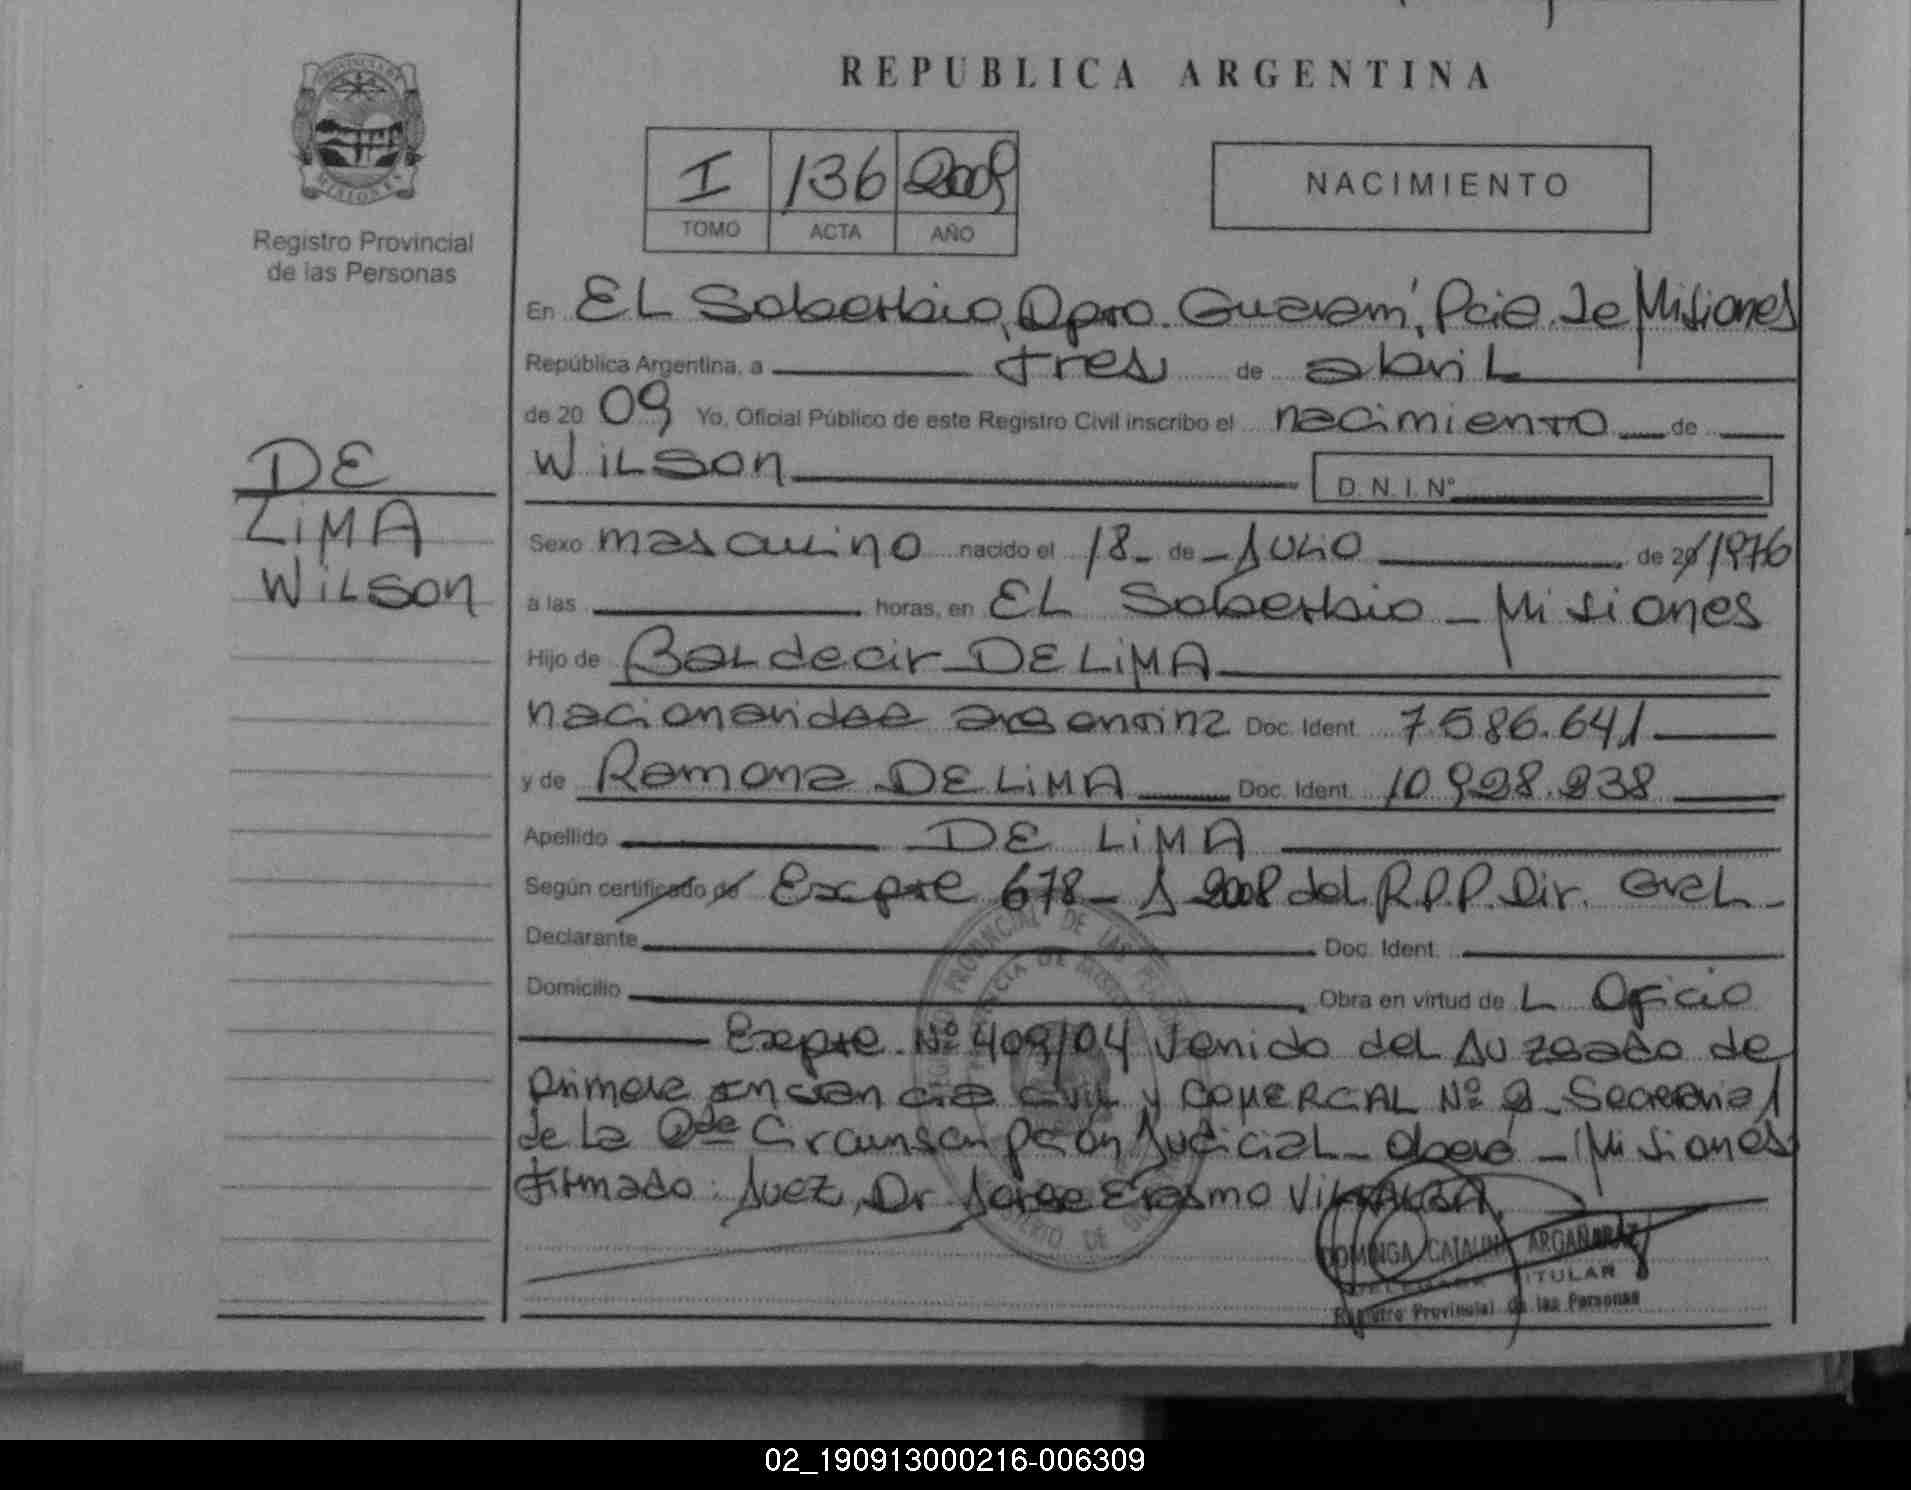 REPUBLICA ARGENTINA
PROVINCIA DE
MISIONES
Registro Provincial
de las Personas
I 136 2009
TOMO ACTA AÑO
NACIMIENTO
DE
LIMA
WiLSon
En EL Soberbio, Dpto. Guaraní, Pcia. de Misiones
República Argentina, a tres de abriL
de 2009 Yo, Oficial Público de este Registro Civil inscribo el nacimiento de
WiLSon D. N. I. Nº
Sexo masculino nacido el 18 - de - Julio de 20/1976
a las horas, en EL Soberbio - Misiones
Hijo de BaLdecir DE LiMA
nacionalidad argentina Doc. Ident. 7.586.641
y de Ramona DE LiMA Doc. Ident. 10.928.238
Apellido DE LiMA
Según certificado de Expte 678 - J 2008 del R.P.P. Dir. GraL -
Declarante Doc. Ident.
Domicilio Obra en virtud de L Oficio
Expte. Nº 409/04 venido del Juzgado de
primera Instancia Civil y COMERCIAL Nº 2 - Secretaria 1
de La 2da Circunscripción Judicial - Oberá - Misiones
firmado: Juez, Dr Jorge Erasmo VillALBA
DOMINGA CATALINA ARGAÑARAZ
DELEGADA TITULAR
Registro Provincial de las Personas
02_190913000216-006309